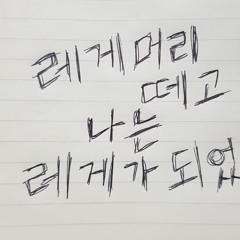 레게머리
떼고
나는
레게가 되었